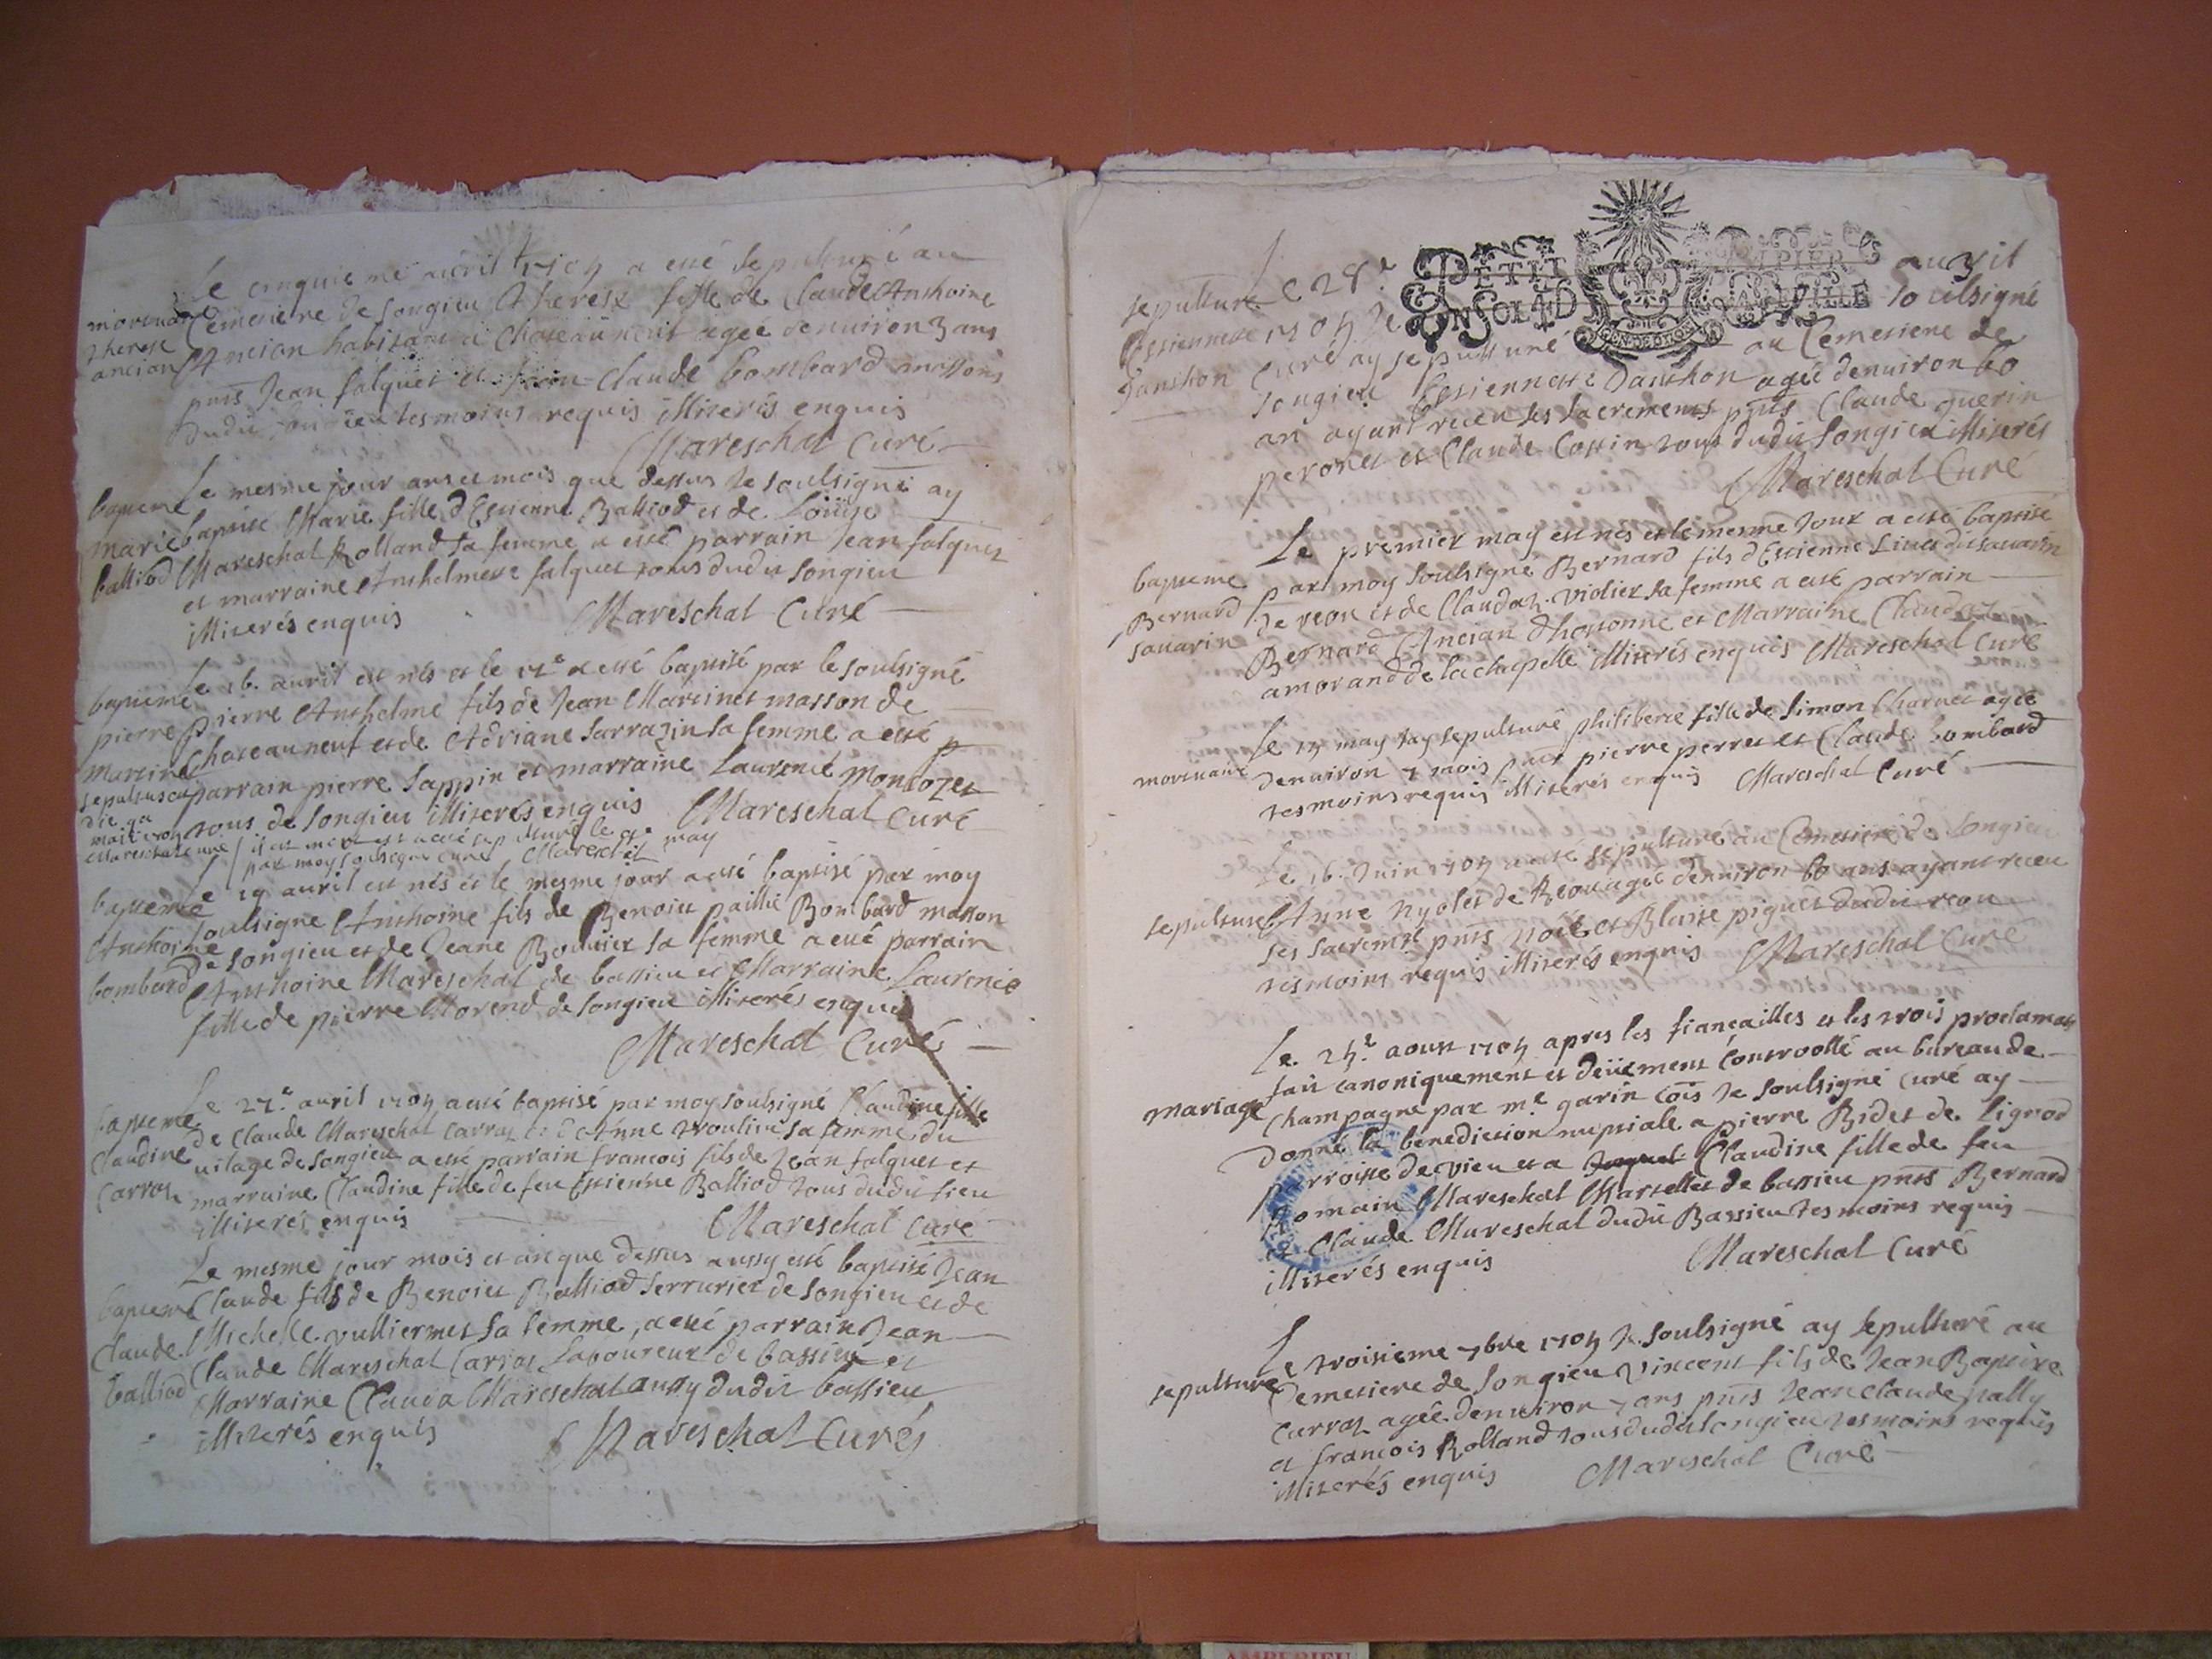 Le cinquieme auril 1705 a esté sepulturé au
mortuaire Cemetiere de Songieu Therese fille de Claude Anthoine
therese Ancian habitant a Chateauneuf agée denuiron 3 ans
ancian pnts Jean falquet et Claude bombard massons
dudit Songieu tesmoins requis illiterés enquis
Mareschal Curé
Le mesme jour an et mois que dessus Je soulsigné ay
bapteme baptisé Marie fille d'Estienne Balliod et de Loüise
marie Mareschal Rolland sa femme a esté parrain Jean falquet
balliod et marraine Anthelmete falquet tous dudit Songieu
illiterés enquis Mareschal Curé
Le 16. auril est nés et le 17e a esté baptisé par le soulsigné
bapteme pierre Anthelme fils de Jean Martinet masson de
pierre Chateauneuf et de Adriane Sarrazin sa femme a esté p
martinet parrain pierre Sappin et marraine Laurence Montozet
tous de Songieu illiterés enquis Mareschal Curé
par moy soulsigné curé Mareschal may
Le 19 auril est nés et le mesme jour a esté baptisé par moy
bapteme soulsigné Anthoine fils de Benoist paillie Bombard masson
Anthoine de Songieu et de Jeane Bouuier sa femme a esté parrain
bombard Anthoine Mareschal de bassieu et Marraine Laurence
fille de pierre Morend de Songieu illiterés enquis
Mareschal Curé
Le 27e auril 1705 a esté baptisé par moy soulsigné Claudine fille
bapteme de Claude Mareschal Carraz et d'Anne trouliou sa femme du
Claudine uilage de Songieu a esté parrain francois fils de Jean falquet et
Carraz marraine Claudine fille de feu Estienne Balliod tous dudit lieu
illiterés enquis Mareschal Curé
Le mesme jour mois et an que dessus aussy esté baptisé Jean
bapteme Claude fils de Benoist Balliod Serrurier de Songieu et de
Claude Michelle vulliermet sa femme, a esté parrain Jean
balliod Claude Mareschal Carraz Laboureur de bassieu et
Marraine Clauda Mareschal aussy dudit bassieu
illiterés enquis Mareschal Curé
PETIT PAPIER
Le 28e auril
sepulture 1705 Je soulsigné
Estiennete Curé ay sepulturé au Cemetiere de
Janthon Songieu Estiennette Janthon agée denuiron 60
an ayant receu les sacrements pnts Claude guerin
peronet et Claude Cottin tous dudit Songieu illiterés
Mareschal Curé
Le premier may est nés et le mesme Jour a esté baptisé
bapteme par moy soulsigné Bernard fils d'Estienne Liuet dit sauarin
Bernard de reou et de Claudaz violier sa femme a esté parrain
sauarin Bernard Ancian d'hotonne et Marraine Claudaz
amorand de la chapelle illiterés enquis Mareschal Curé
Le 15 may Jay sepulturé philiberte fille de Simon Charuet agée
mortuaire denuiron 7 mois pnts pierre perret et Claude bombard
tesmoins requis illiterés enquis Mareschal Curé
Le 16. Juin 1705 a esté sepulturé au Cemetiere de Songieu
sepulture Anne nyolet de Reou agée denuiron 60 ans ayant receu
ses sacrements pnts Noël et Blaise piguet dudit reou
tesmoins requis illiterés enquis Mareschal Curé
Le 25e aoust 1705 apres les fiancailles et les trois proclamaons
fait canoniquement et deüement Controollé au bureau de
mariage Champagne par me garin Cois Je soulsigné curé ay
Donné la benediction nuptiale a pierre Bidet de Lignod
parroisse de vieu et a Claudine fille de feu
Romain Mareschal Martellet de bassieu pnts Bernard
et Claude Mareschal dudit Bassieu tesmoins requis
illiterés enquis Mareschal Curé
Le troisieme 7bre 1705 Je soulsigné ay sepulturé au
sepulture Cemetiere de Songieu vincent fils de Jean Baptiste
Carraz agée denuiron 7 ans pnts Jean claude pally
et francois Rolland tous dudit Songieu tesmoins requis
illiterés enquis Mareschal Curé